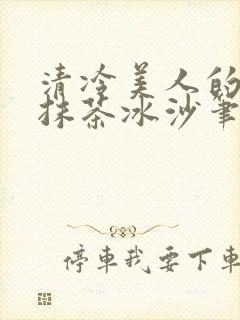 清冷美人的
抹茶冰沙筆
停車我要下車